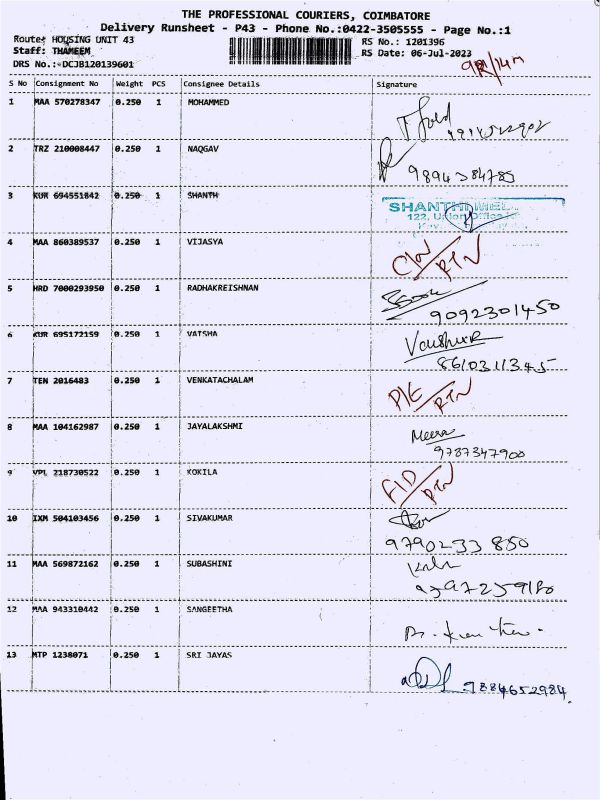 THE PROFESSIONAL COURIERS, COIMBATORE
Delivery Runsheet - P43 - Phone No.:0422-3505555 - Page No.:1
Route: HOUSING UNIT 43
RS No.: 1201396
Staff: THAMEEM
RS Date: 06-Jul-2023
DRS No.:-DCJB120139601
S No Consignment No Weight PCS Consignee Details Signature
1 MAA 570278347 0.250 1 MOHAMMED
2 TRZ 210008447 0.250 1 NAQGAV
9894384785
3 KUR 694551842 0.250 1 SHANTH
SHANTHI
122, Union Office
4 MAA 860389537 0.250 1 VIJASYA
RTN
5 HRD 7000293950 0.250 1 RADHAKREISHNAN
9092301450
6 KUR 695172159 0.250 1 VATSHA
8610311345
7 TEN 2016483 0.250 1 VENKATACHALAM
RTN
8 MAA 104162987 0.250 1 JAYALAKSHMI
Meena
9787347900
9 VPL 218730522 0.250 1 KOKILA
RTN
10 IXM 504103456 0.250 1 SIVAKUMAR
9790233850
11 MAA 569872162 0.250 1 SUBASHINI
12 MAA 943310442 0.250 1 SANGEETHA
13 MTP 1238071 0.250 1 SRI JAYAS
9884652984